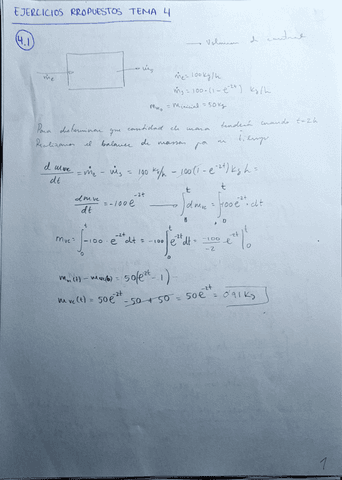 EJERCICIOS PROPUESTOS TEMA 4
4.1
→ Volumen de control
ṁe
ṁs
ṁe = 100 kg/h
ṁs = 100·(1-e^-2t) kg/h
inicial = 50 kg
Para determinar que cantidad de masa tendrá cuando t=2h
Realizamos el balance de masa
d mvc/dt = ṁe - ṁs = 100 kg/h - 100(1-e^-2t) kg/h =
dmvc/dt = -100e^-2t → ∫ dm = ∫ 100e^-2t · dt
mvc = ∫ -100 e^-2t dt = -100 ∫ e^-2t dt = -100/-2 e^-2t |
(t) - = 50(e^-2t - 1)
mvc(t) = 50e^-2t - 50 + 50 = 50e^-2t = 0'91 kg
1